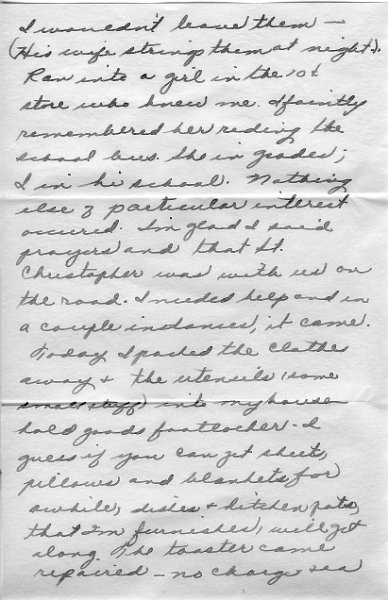 I wouldn't leave them —
(His wife strings them at night).
Ran into a girl in the 10¢
store who knew me. I faintly
remembered her riding the
school bus. She in grades;
I in hi school. Nothing
else of particular interest
occured. I'm glad I said
prayers and that St.
Christopher was with us on
the road. I needed help and in
a couple instances, it came.
Today I packed the clothes
away + the utensils (some
small stuff) into my house
hold goods footlocker. I
guess if you can get sheets,
pillows and blankets for
awhile, dishes + kitchen pots,
that I'm furnished, will get
along. The toaster came
repaired — no charge